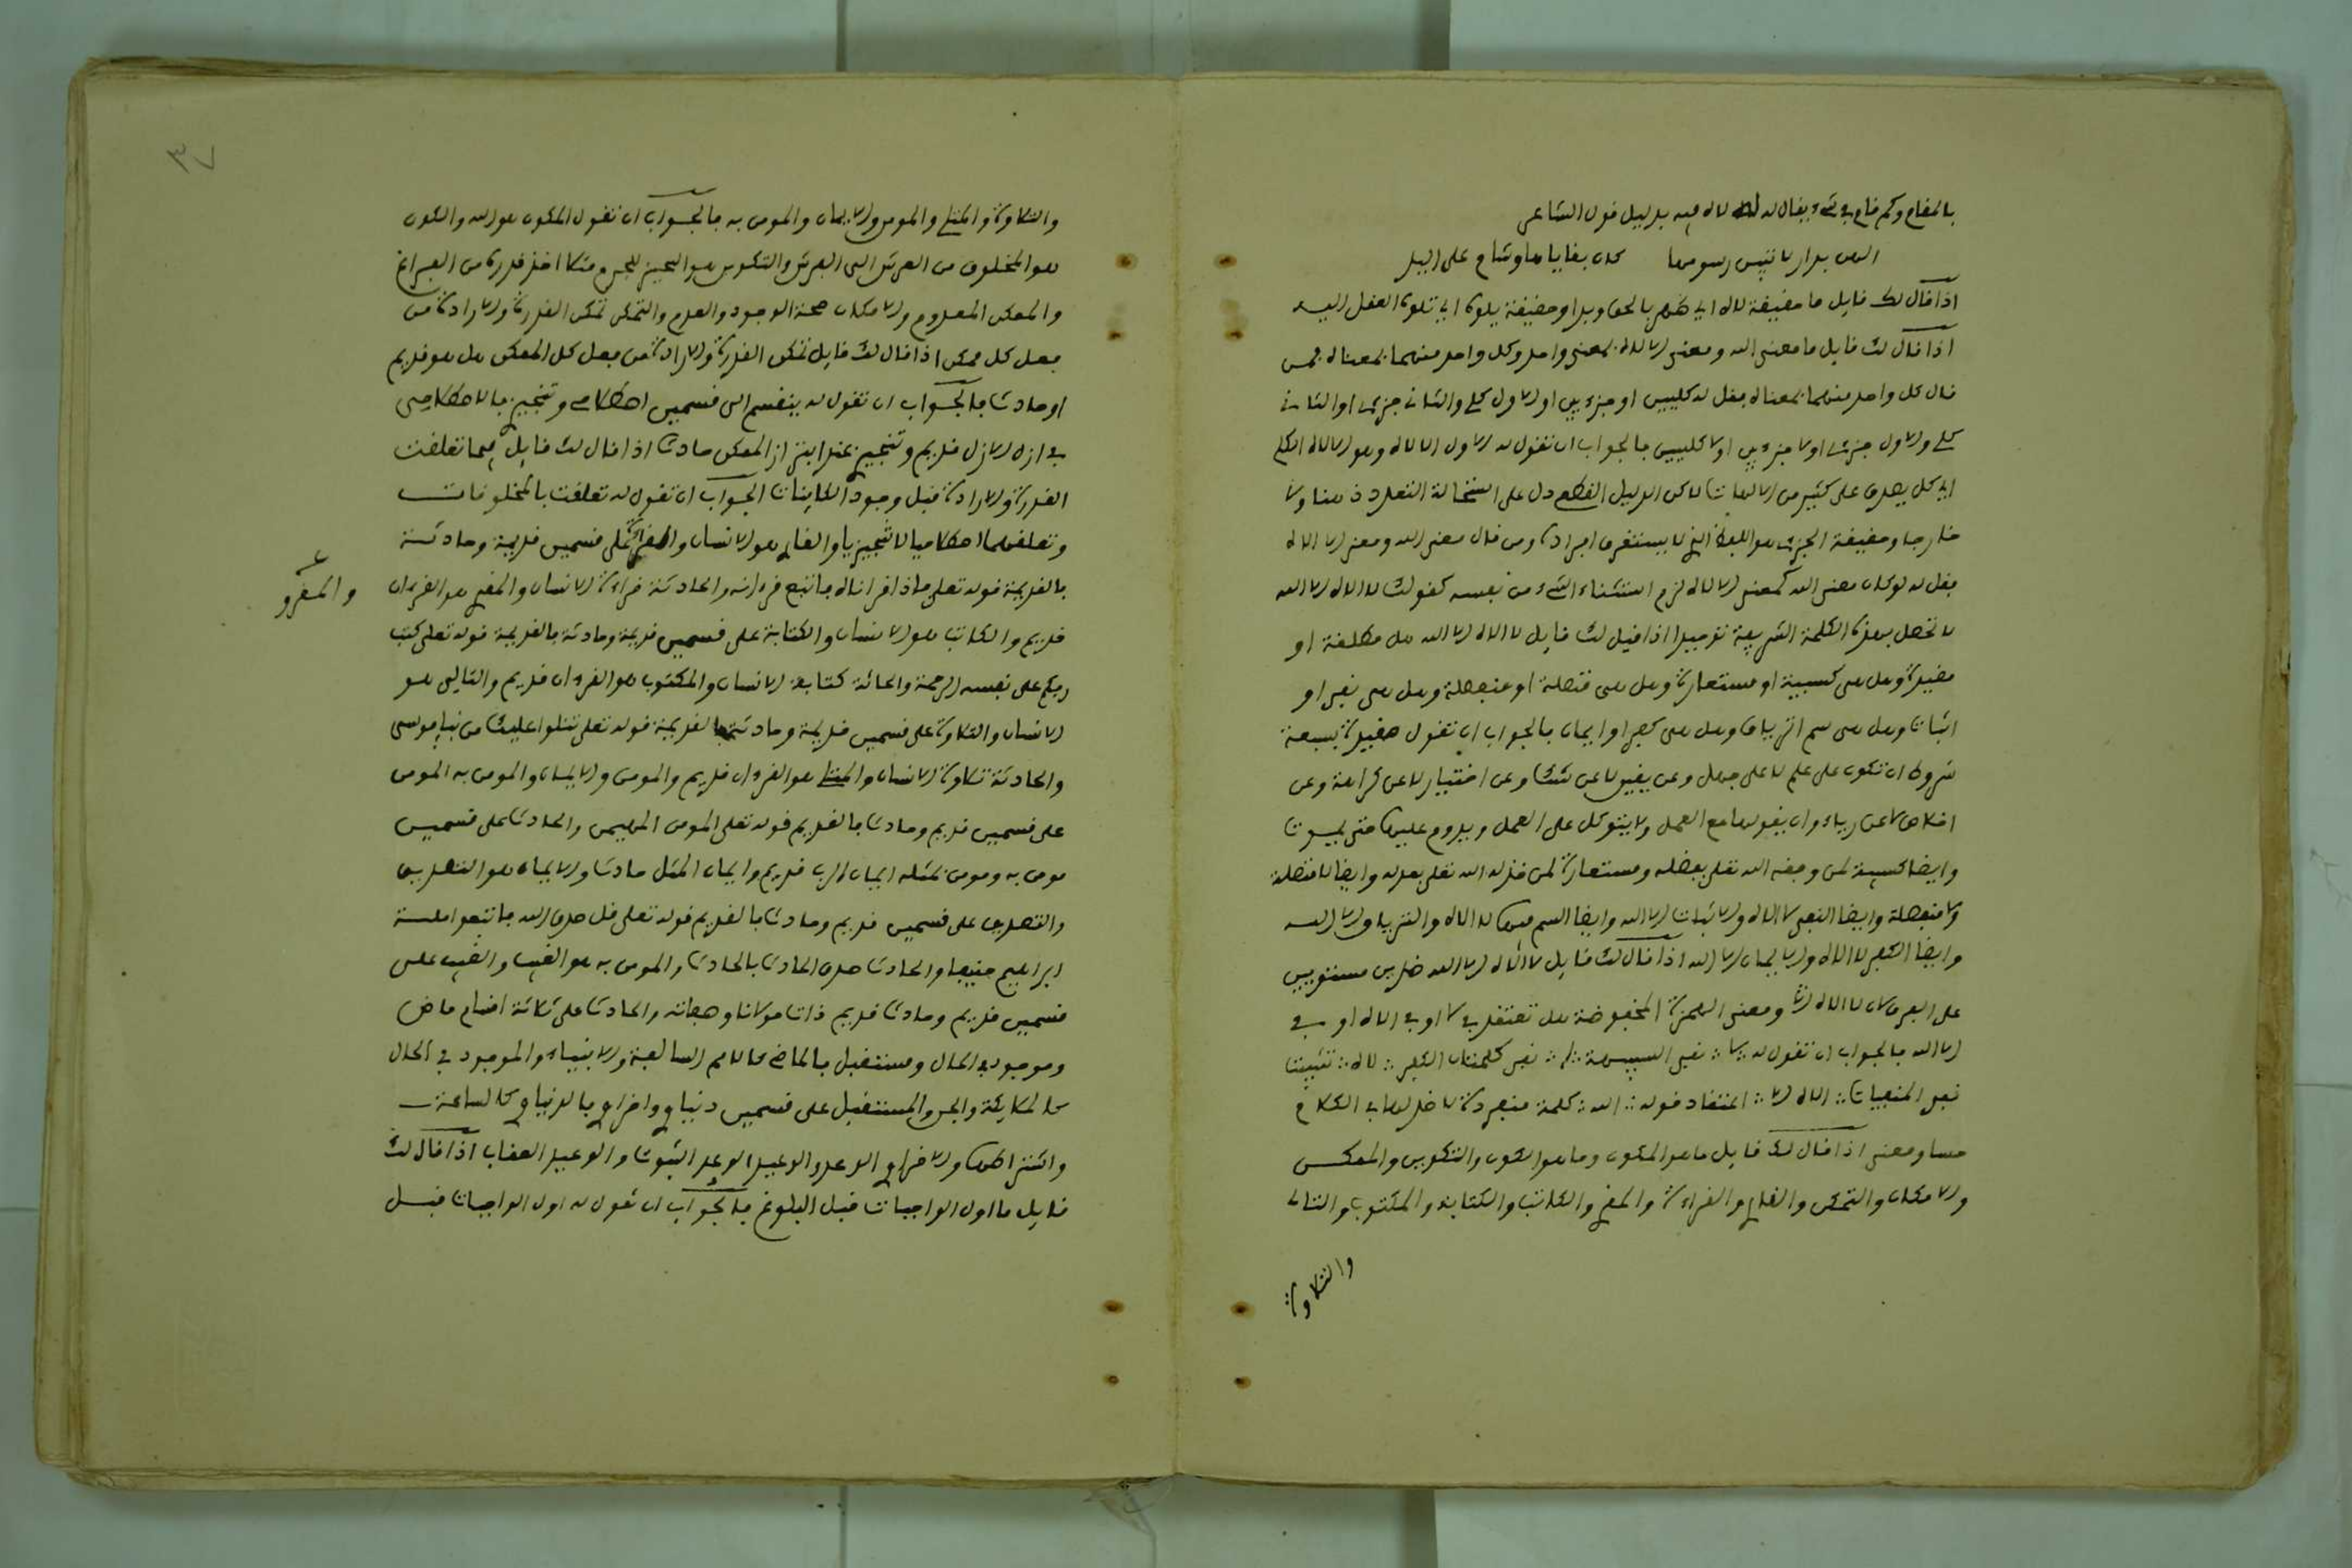 بالمقام وكم قام في شيء يقال له لاه فيه بدليل قول الشاعر
لاهت بدار لا تبين رسومها كان بقاياها وشام على اليد
اذا قال لك قايل ما حقيقة لاه اي ظهر بالحق وبدا وحقيقة يلوه اي تلوه العقل اليه
اذا قال لك قايل ما معنى الله ومعنى الاله بمعنى واحد وكل واحد منهما بمعناه فمن
قال كل واحد منهما بمعناه فقل له كليين او جزءيين او الاول كلي والثاني جزءي او الثاني
كلي والاول جزءي او لا جزءيين او لا كليين فالجواب ان تقول له الاول الاله وهو الاله الكلي
اي كل يصدق على كثير من الالهات لاكن الدليل القطع دل على استحالة التعدد ذهنا ولا
خارجا وحقيقة الجزءي هو اللفظ الذي لا يستغرق افراده ومن قال معنى الله ومعنى الاله
فقل له لو كان معنى الله كمعنى الاله لزم استثناء الشيء من نفسه كقولك لا اله الا الله
لا تحصل بهذه الكلمة الشريفة توحيدا اذا قيل لك قايل لا اله الا الله هل مطلقة او
مقيدة وهل هي كسبية او مستعارة وهل هي متصلة او منفصلة وهل هي نفي او
اثبات وهل هي سم او ترياق وهل هي كفر او ايمان فالجواب ان تقول مقيدة بسبعة
شروط ان تكون على علم لا على جهل وعن يقين لا عن شك وعن اختيار لا عن كراهة وعن
اخلاص لا عن رياء وان يقولها مع العمل ولا يتوكل على العمل ويدوم عليها حتى يموت
وايضا كسبية لمن وفقه الله تعلى بفضله ومستعارة لمن خذله الله تعلى بعدله وايضا لا متصلة
ولا منفصلة وايضا النفي لا اله والاثبات الا الله وايضا السم فيها لا اله والترياق الا الله
وايضا الكفر لا اله والايمان الا الله اذا قال لك قايل لا اله الا الله ضدين مستويين
لا اله الا الله ومعنى الهمزة المخفوضة هل تعتقد في لا او في اله او في
الا الله فالجواب ان تقول له لا نفي كلمتان الكفر لاه تثبيت
نفي المنفيات اله الا انتقاد قوله الله كلمة منفردة لا ضد لها في الكلام
حسا ومعنى اذا قال لك قايل ما هو المكون وما هو الكون والتكوين والممكن
والامكان والتمكن والقاري والقراءة والمقري والكاتب والكتابة والمكتوب والتالي
والتلاوة
٣٧
والتلاوة والمتلي والمومن والايمان والمومن به فالجواب ان تقول المكون هو الله والكون
هو المخلوق من العرش الى الفرش والتكوين هو التحيز للجرم مثلا اخذ قدره من الفراغ
والممكن المعدوم والامكان صحة الوجود والعدم والتمكن تمكن القدرة والارادة من
فعل كل ممكن اذا قال لك قايل تمكن القدرة والارادة من فعل كل الممكن هل هو قديم
او حادث فالجواب ان تقول له ينقسم الى قسمين اصلاحي وتنجيزي فالاصلاحي
في ازل الازل قديم وتنجيزي عند ابتراز الممكن حادث اذا قال لك قايل فيما تعلقت
القدرة والارادة قبل وجود الكاينات الجواب ان تقول له تعلقت بالمخلوقات
وتعلقهما اصلاحيا لا تنجيزيا والقاري هو الانسان والقراءة على قسمين قديمة وحادثة
والمقرو
فالقديمة قوله تعلى فاذا قراناه فاتبع قرءانه والحادثة قراءة الانسان والمقري هو القرءان
قديم والكاتب هو الانسان والكتابة على قسمين قديمة وحادثة فالقديمة قوله تعلى كتب
ربكم على نفسه الرحمة والحادثة كتابة الانسان والمكتوب هو القرءان قديم والتالي هو
الانسان والتلاوة على قسمين قديمة وحادثة فالقديمة قوله تعلى نتلوا عليك من نبإ موسى
والحادثة تلاوة الانسان والمتلي هو القرءان قديم والمومن والايمان والمومن به المومن
على قسمين قديم وحادث فالقديم قوله تعلى المومن المهيمن والحادث على قسمين
مومن به ومومن بمثله ايمان الرب قديم وايمان المثل حادث والايمان هو التصديق
والتصديق على قسمين قديم وحادث فالقديم قوله تعلى قل صدق الله فاتبعوا ملة
ابراهيم حنيفا والحادث صدق الحادث بالحادث والمومن به هو الغيب والغيب على
قسمين قديم وحادث قديم ذات مولانا وصفاته والحادث على ثلاثة اقسام ماض
وموجود في الحال ومستقبل فالماضي كالامم السالفة والانبياء والموجود في الحال
كالملايكة والجن والمستقبل على قسمين دنياوي واخراوي فالدنياوي كالساعة
واشتراطها والاخراوي الوعد والوعيد الوعد الثبوت والوعيد العقاب اذا قال لك
قايل ما اول الواجبات قبل البلوغ فالجواب ان تقول له اول الواجبات قبل